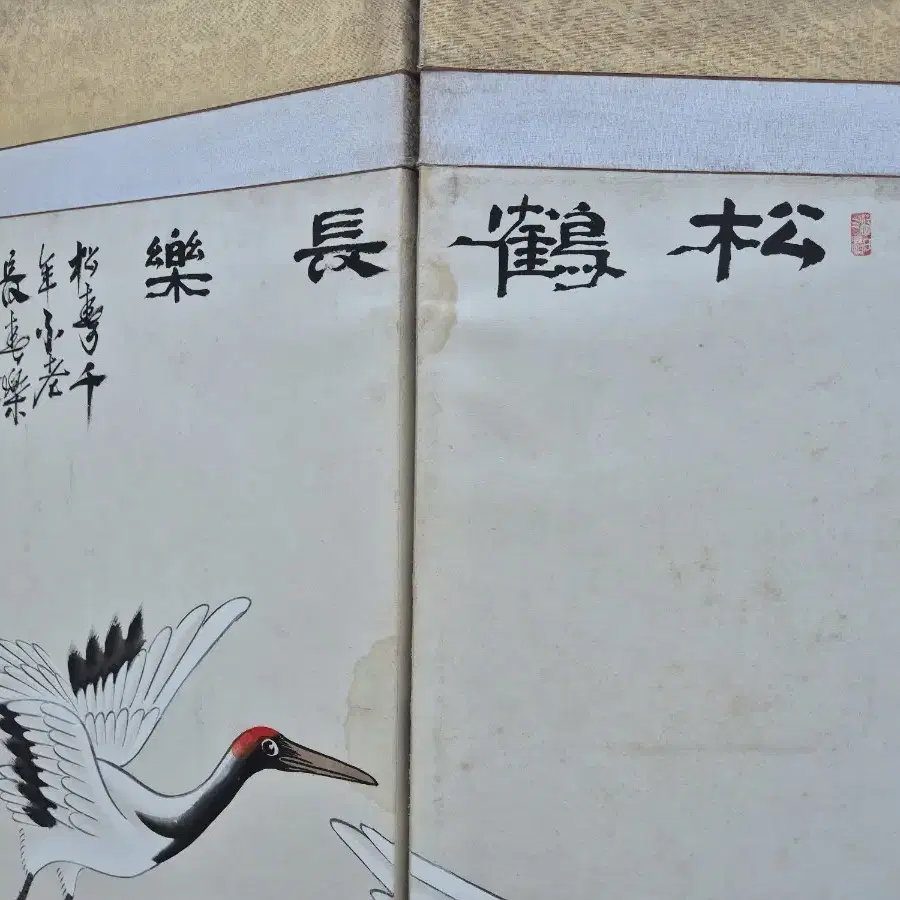 松鶴長樂
松壽千
年不老
長壽樂